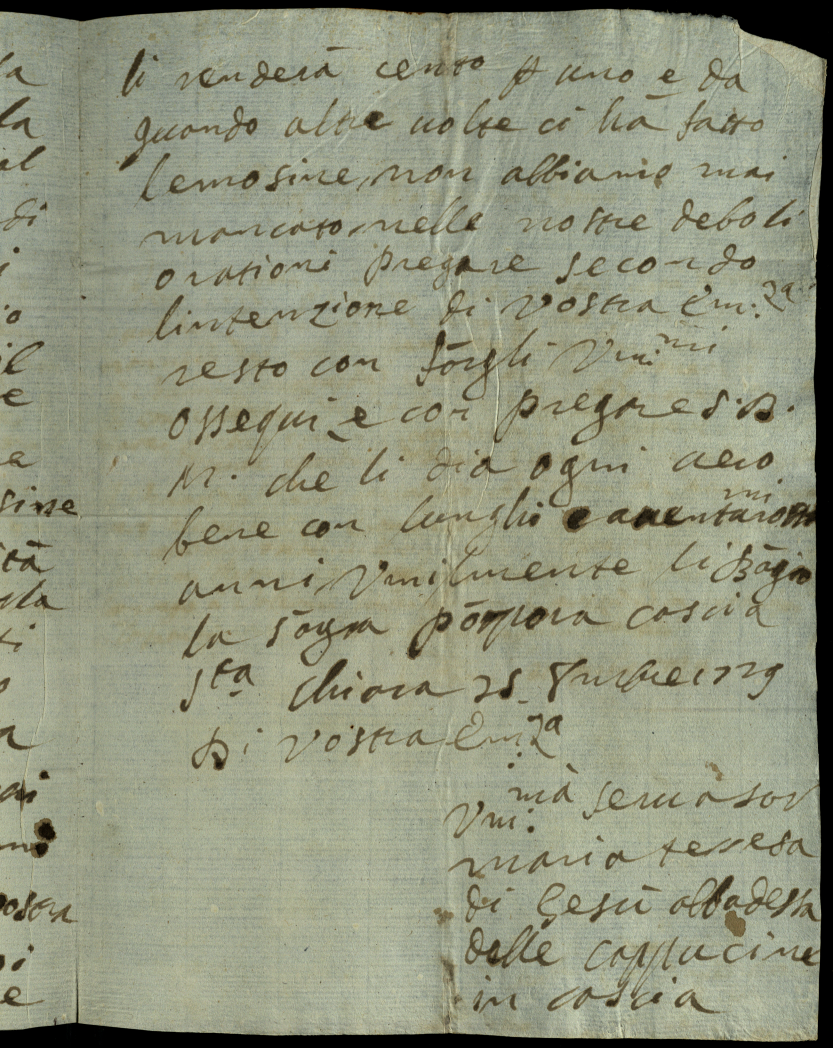 la
la
al
di
i
o
il
e
e
sine
tà
sla
ti
o
a
ai
ostra
pi
e
li renderà cento p uno e da
quando altre uolte ci hà fatto
lemosine, non abbiamo mai
mancato, nelle nostre deboli
orationi pregare secondo
lintenzione di Vostra Em:za
resto con forgli Vmi:mi
ossequi e con pregare S. D.
M. che li dia ogni uero
bene con lunghi e auenturosmi
anni, Vmilmente li Bagio
la Sagra porpora cascia
Sta chiara 25 8mbre 1729
Di Vostra Em:za
Vmi:mà serua sor
maria teresa
di Gesù abbadessa
delle cappucine
in cascia